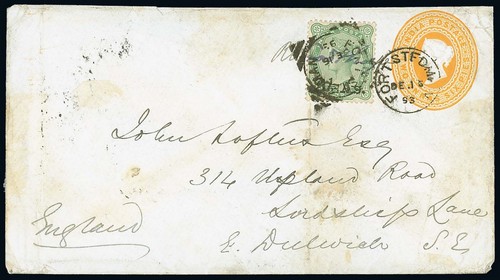 INDIA POSTAGE
FORT ST
DE 13
93
John Loftus Esq
314 Upland Road
Lordship Lane
England
E. Dulwich S.E.